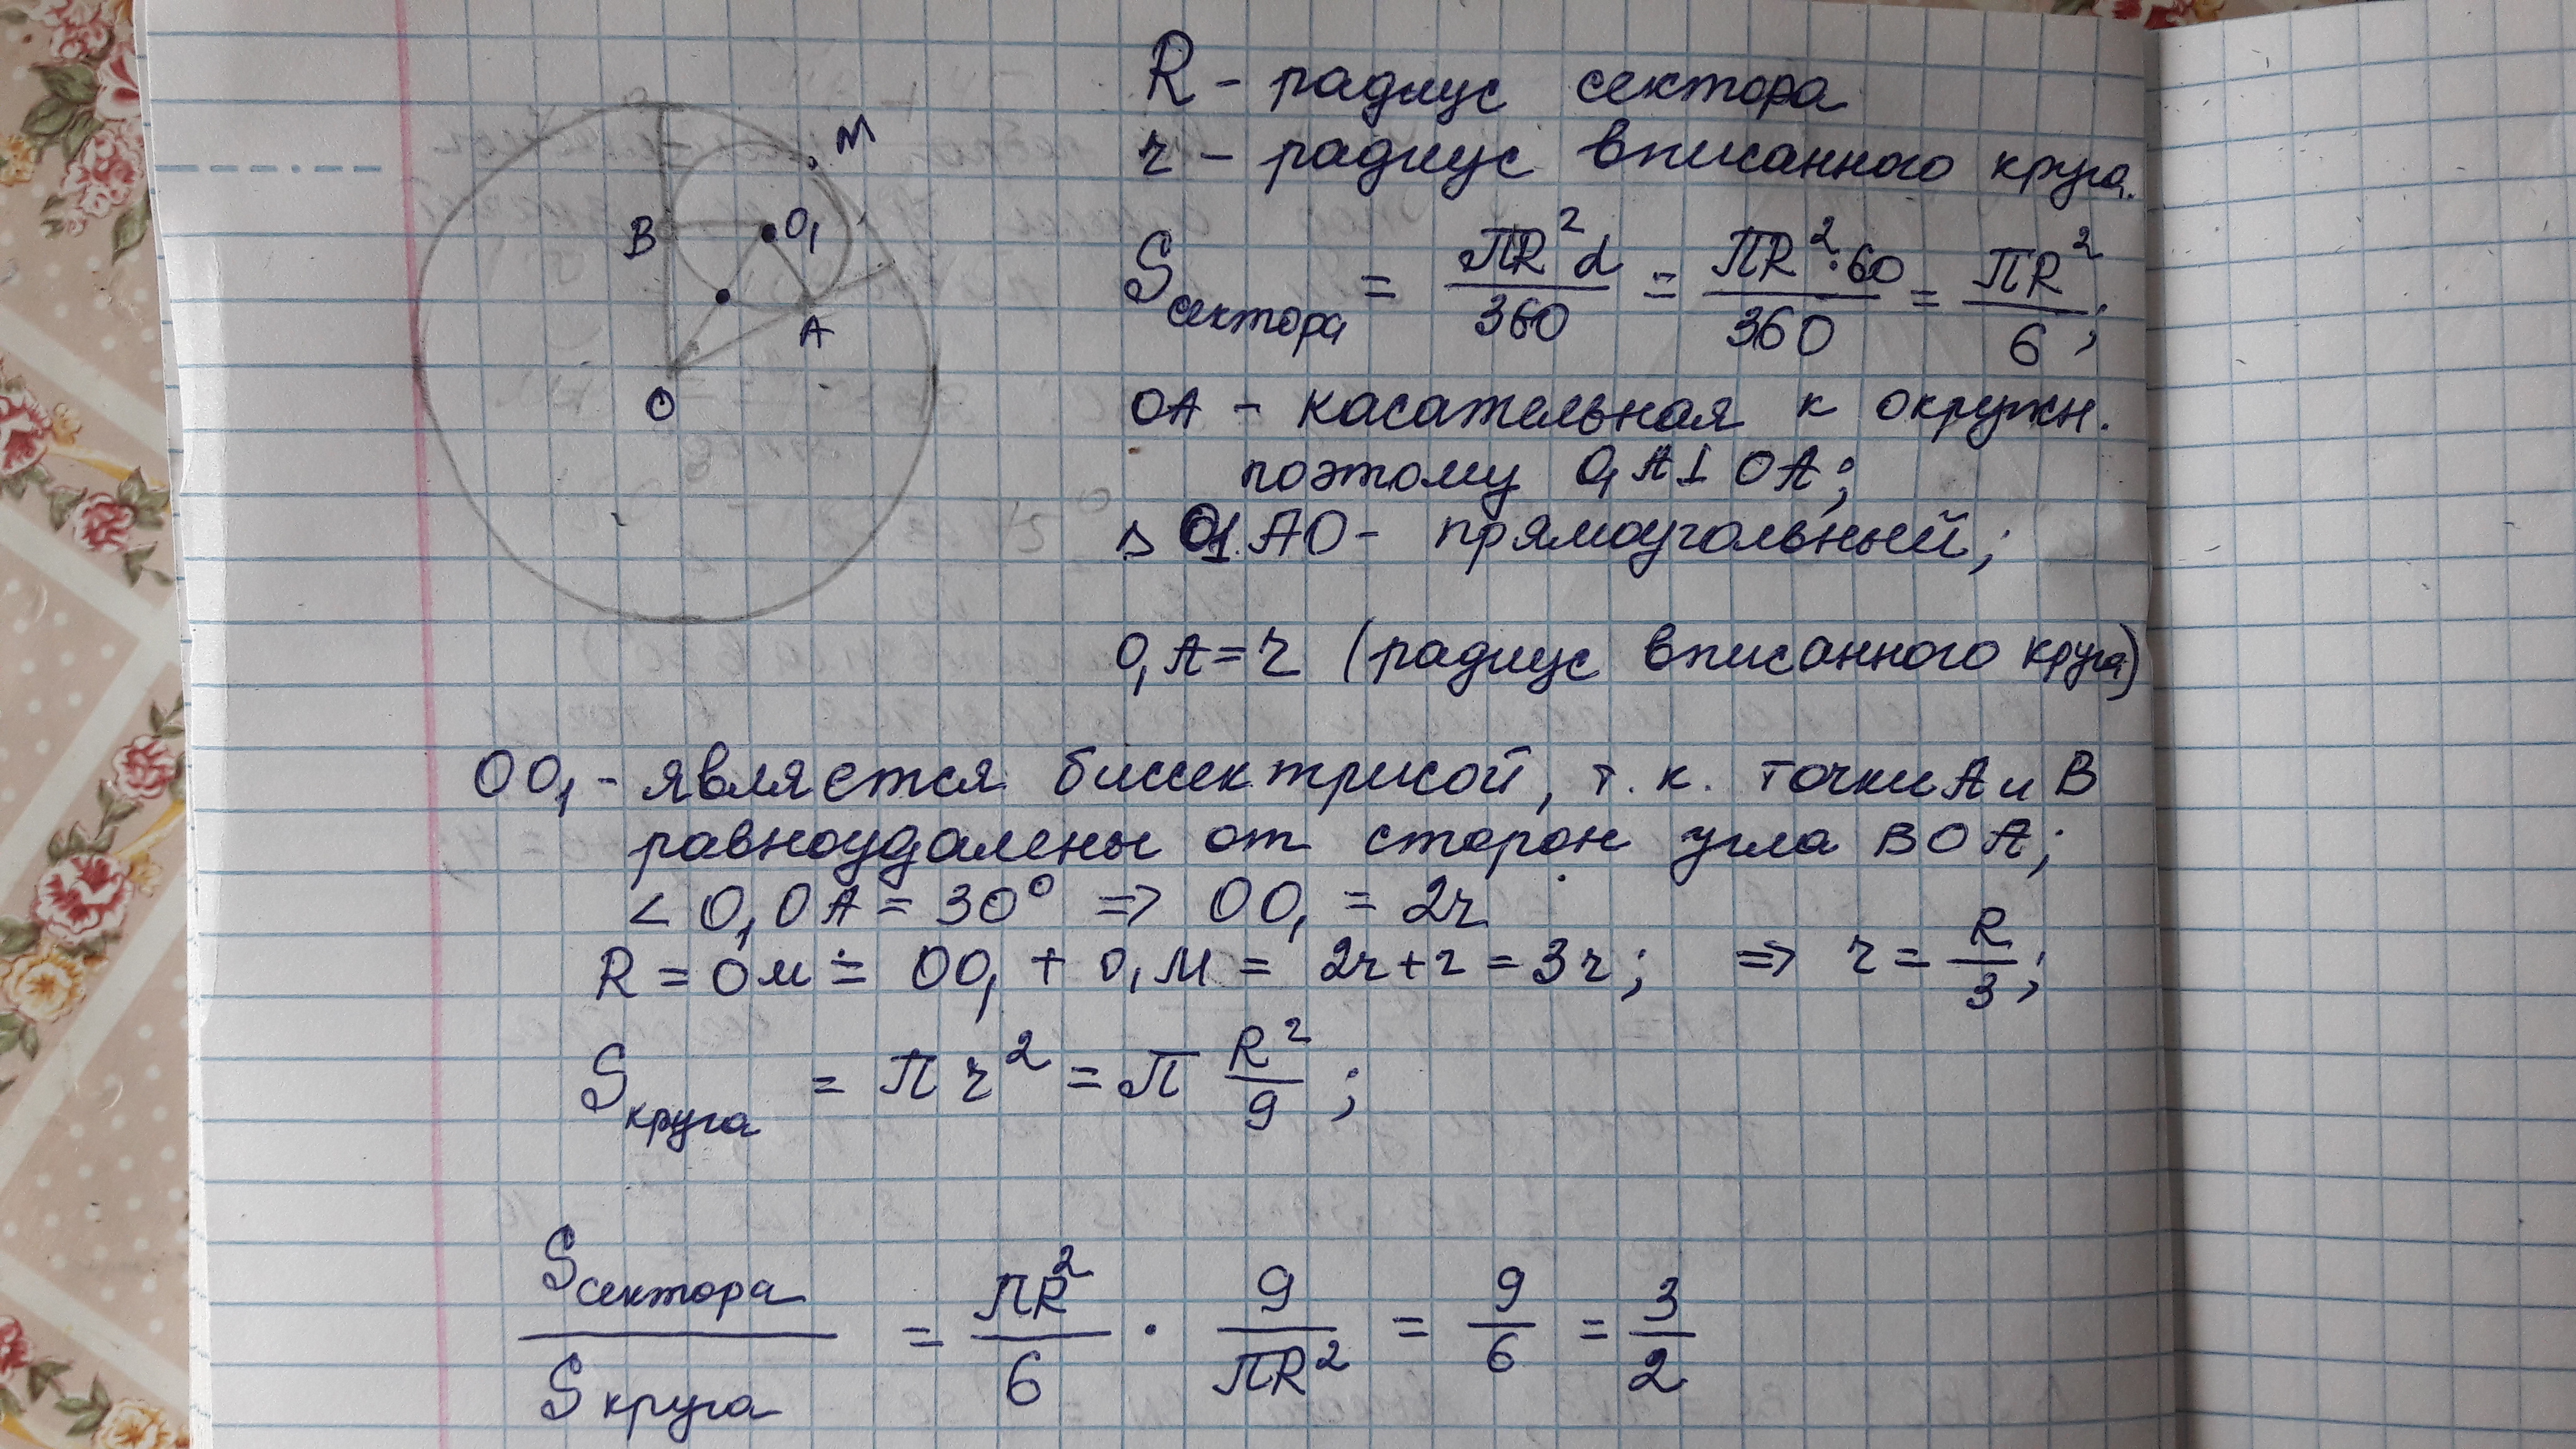 M
B
O₁
A
O
R - радиус сектора
r - радиус вписанного круга.
Sсектора = πR²α/360 = πR²·60/360 = πR²/6;
OA - касательная к окружн.
поэтому O₁A⊥OA;
△ O1AO - прямоугольный;
O₁A = r (радиус вписанного круга)
OO₁ - является биссектрисой, т.к. точки A и B
равноудалены от сторон угла BOA;
∠O₁OA = 30° => OO₁ = 2r
R = OM = OO₁ + O₁M = 2r+r = 3r; => r = R/3;
Sкруга = πr² = π R²/9;
Sсектора/Sкруга = πR²/6 · 9/πR² = 9/6 = 3/2